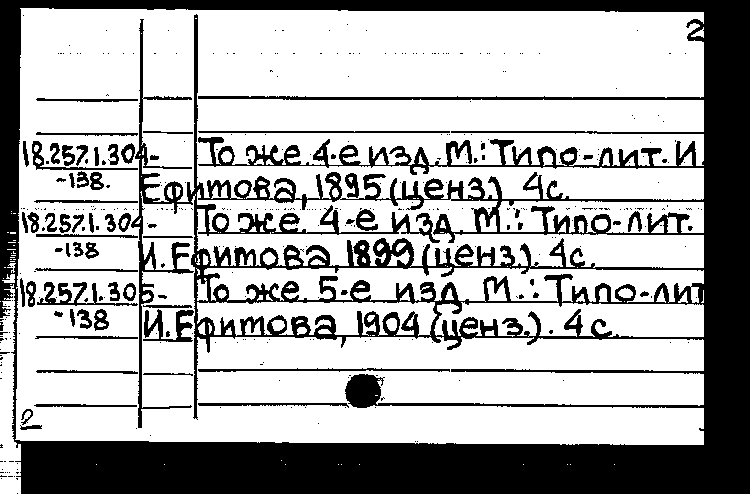 2
18.257.1.304- То же. 4-е изд. М.: Типо-лит. И.
-138. Ефитова, 1895 (ценз.). 4с.
18.257.1.304- То же. 4-е изд. М.: Типо-лит.
-138 И. Ефитова, 1899 (ценз.). 4с.
18.257.1.305- То же. 5-е изд. М.: Типо-лит
-138 И. Ефитова, 1904 (ценз.). 4с.
2